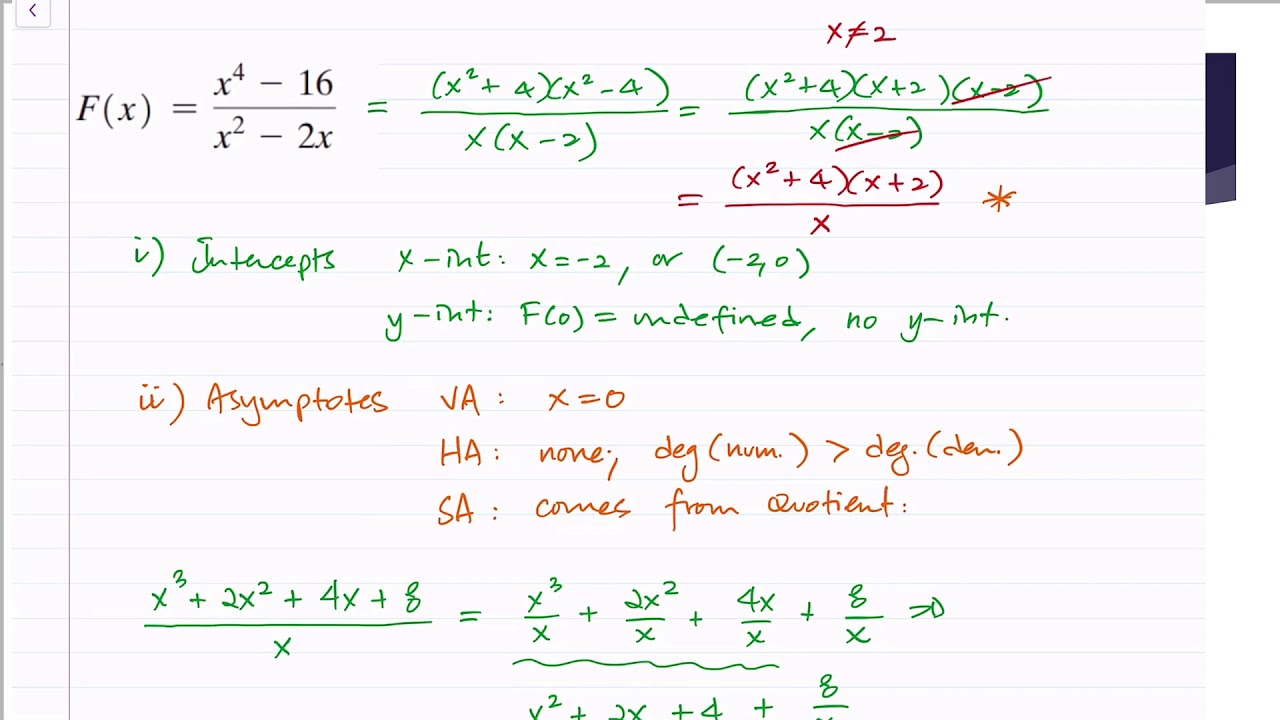 x≠2
F(x) = (x⁴ − 16)/(x² − 2x) = (x²+4)(x²−4)/(x(x−2)) = (x²+4)(x+2)(x−2)/(x(x−2))
= (x²+4)(x+2)/x *
i) Intercepts x-int: x=-2, or (-2,0)
y-int: F(0) = undefined, no y-int.
ii) Asymptotes VA: x=0
HA: none; deg(num.) > deg.(den.)
SA: comes from Quotient:
(x³ + 2x² + 4x + 8)/x = x³/x + 2x²/x + 4x/x + 8/x ⇒
x² + 2x + 4 + 8/x